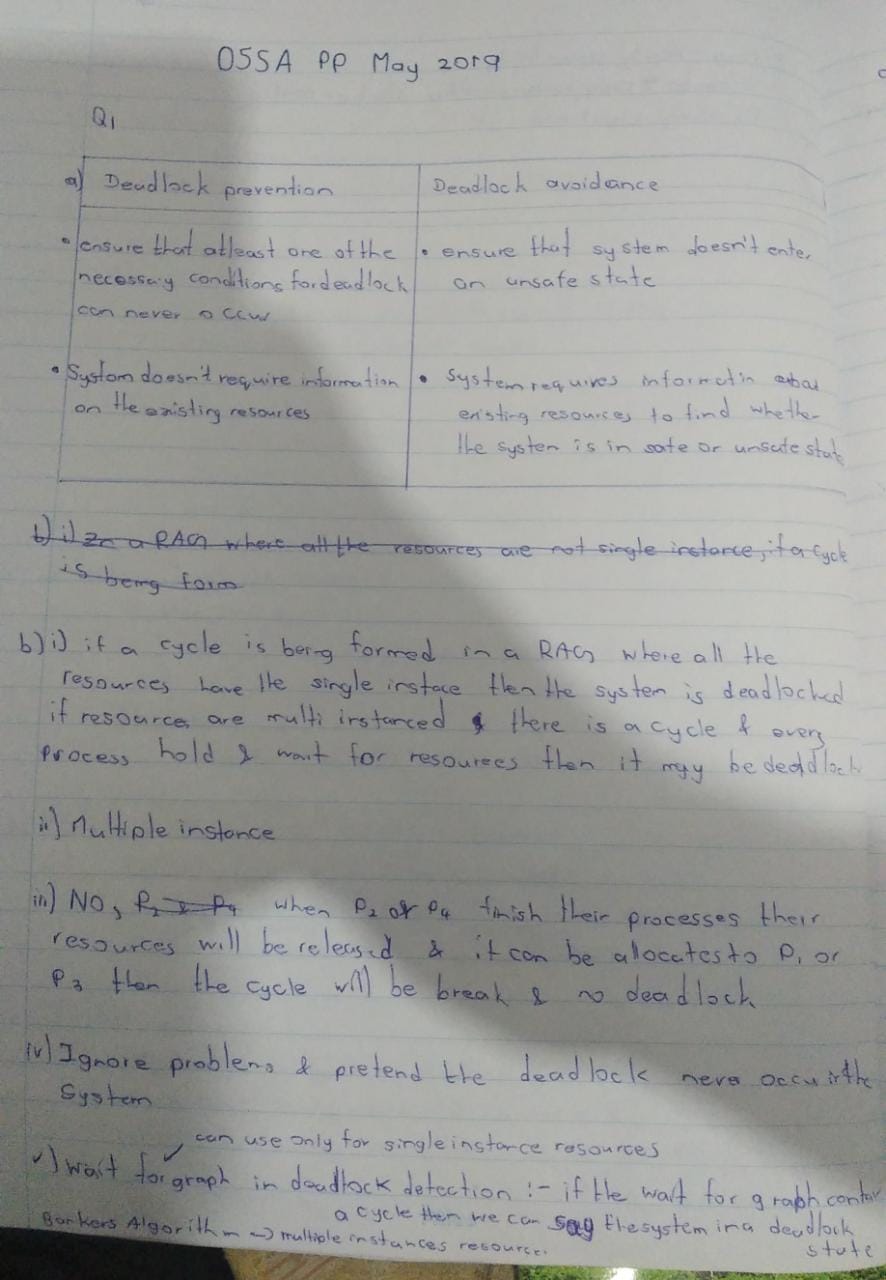 OSSA PP May 2019
Q1
a) Deadlock prevention
Deadlock avoidance
• ensure that atleast one of the
necessary conditions for deadlock
can never occur
• ensure that system doesn't enter
an unsafe state
• System doesn't require information
on the existing resources
• System requires informatin abou
existing resources to find whether
the system is in safe or unsafe state
b) i) In a RAG where all the resources are not single instance, if a cycle
is being form
b) i) if a cycle is being formed in a RAG where all the
resources have the single instace then the system is deadlocked
if resources are multi instanced & there is a cycle & every
process hold & wait for resources then it may be deadlock
ii) Multiple instance
iii) NO, P2 & P4 when P2 or P4 finish their processes their
resources will be released & it can be allocates to P1 or
P3 then the cycle will be break & no deadlock
iv) Ignore problems & pretend the deadlock never occur in the
System
can use only for single instance resources
v) wait for graph in deadlock detection :- if the wait for graph contai
a cycle then we can say the system in a deadlock
state
Bankers Algorithm → multiple instances resource.